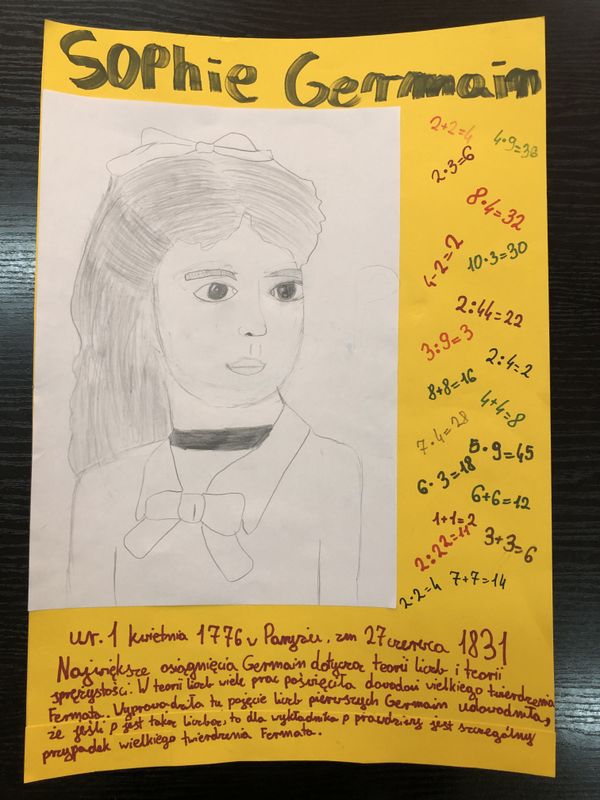 Sophie Germain
2+2=4
4·9=36
2·3=6
8·4=32
4-2=2
10·3=30
2:44=22
3:9=3
2:4=2
8+8=16
4+4=8
7·4=28
5·9=45
6·3=18
6+6=12
1+1=2
2:22=11
3+3=6
2·2=4
7+7=14
ur. 1 kwietnia 1776 w Paryżu, zm 27 czerwca 1831
Największe osiągnięcia Germain dotyczą teorii liczb i teorii
sprężystości. W teorii liczb wiele prac poświęciła dowodowi wielkiego twierdzenia
Fermata. Wyprowadziła tu pojęcie liczb pierwszych Germain udowodniła,
że jeśli p jest taką liczbą, to dla wykładnika p prawdziwy jest szczególny
przypadek wielkiego twierdzenia Fermata.